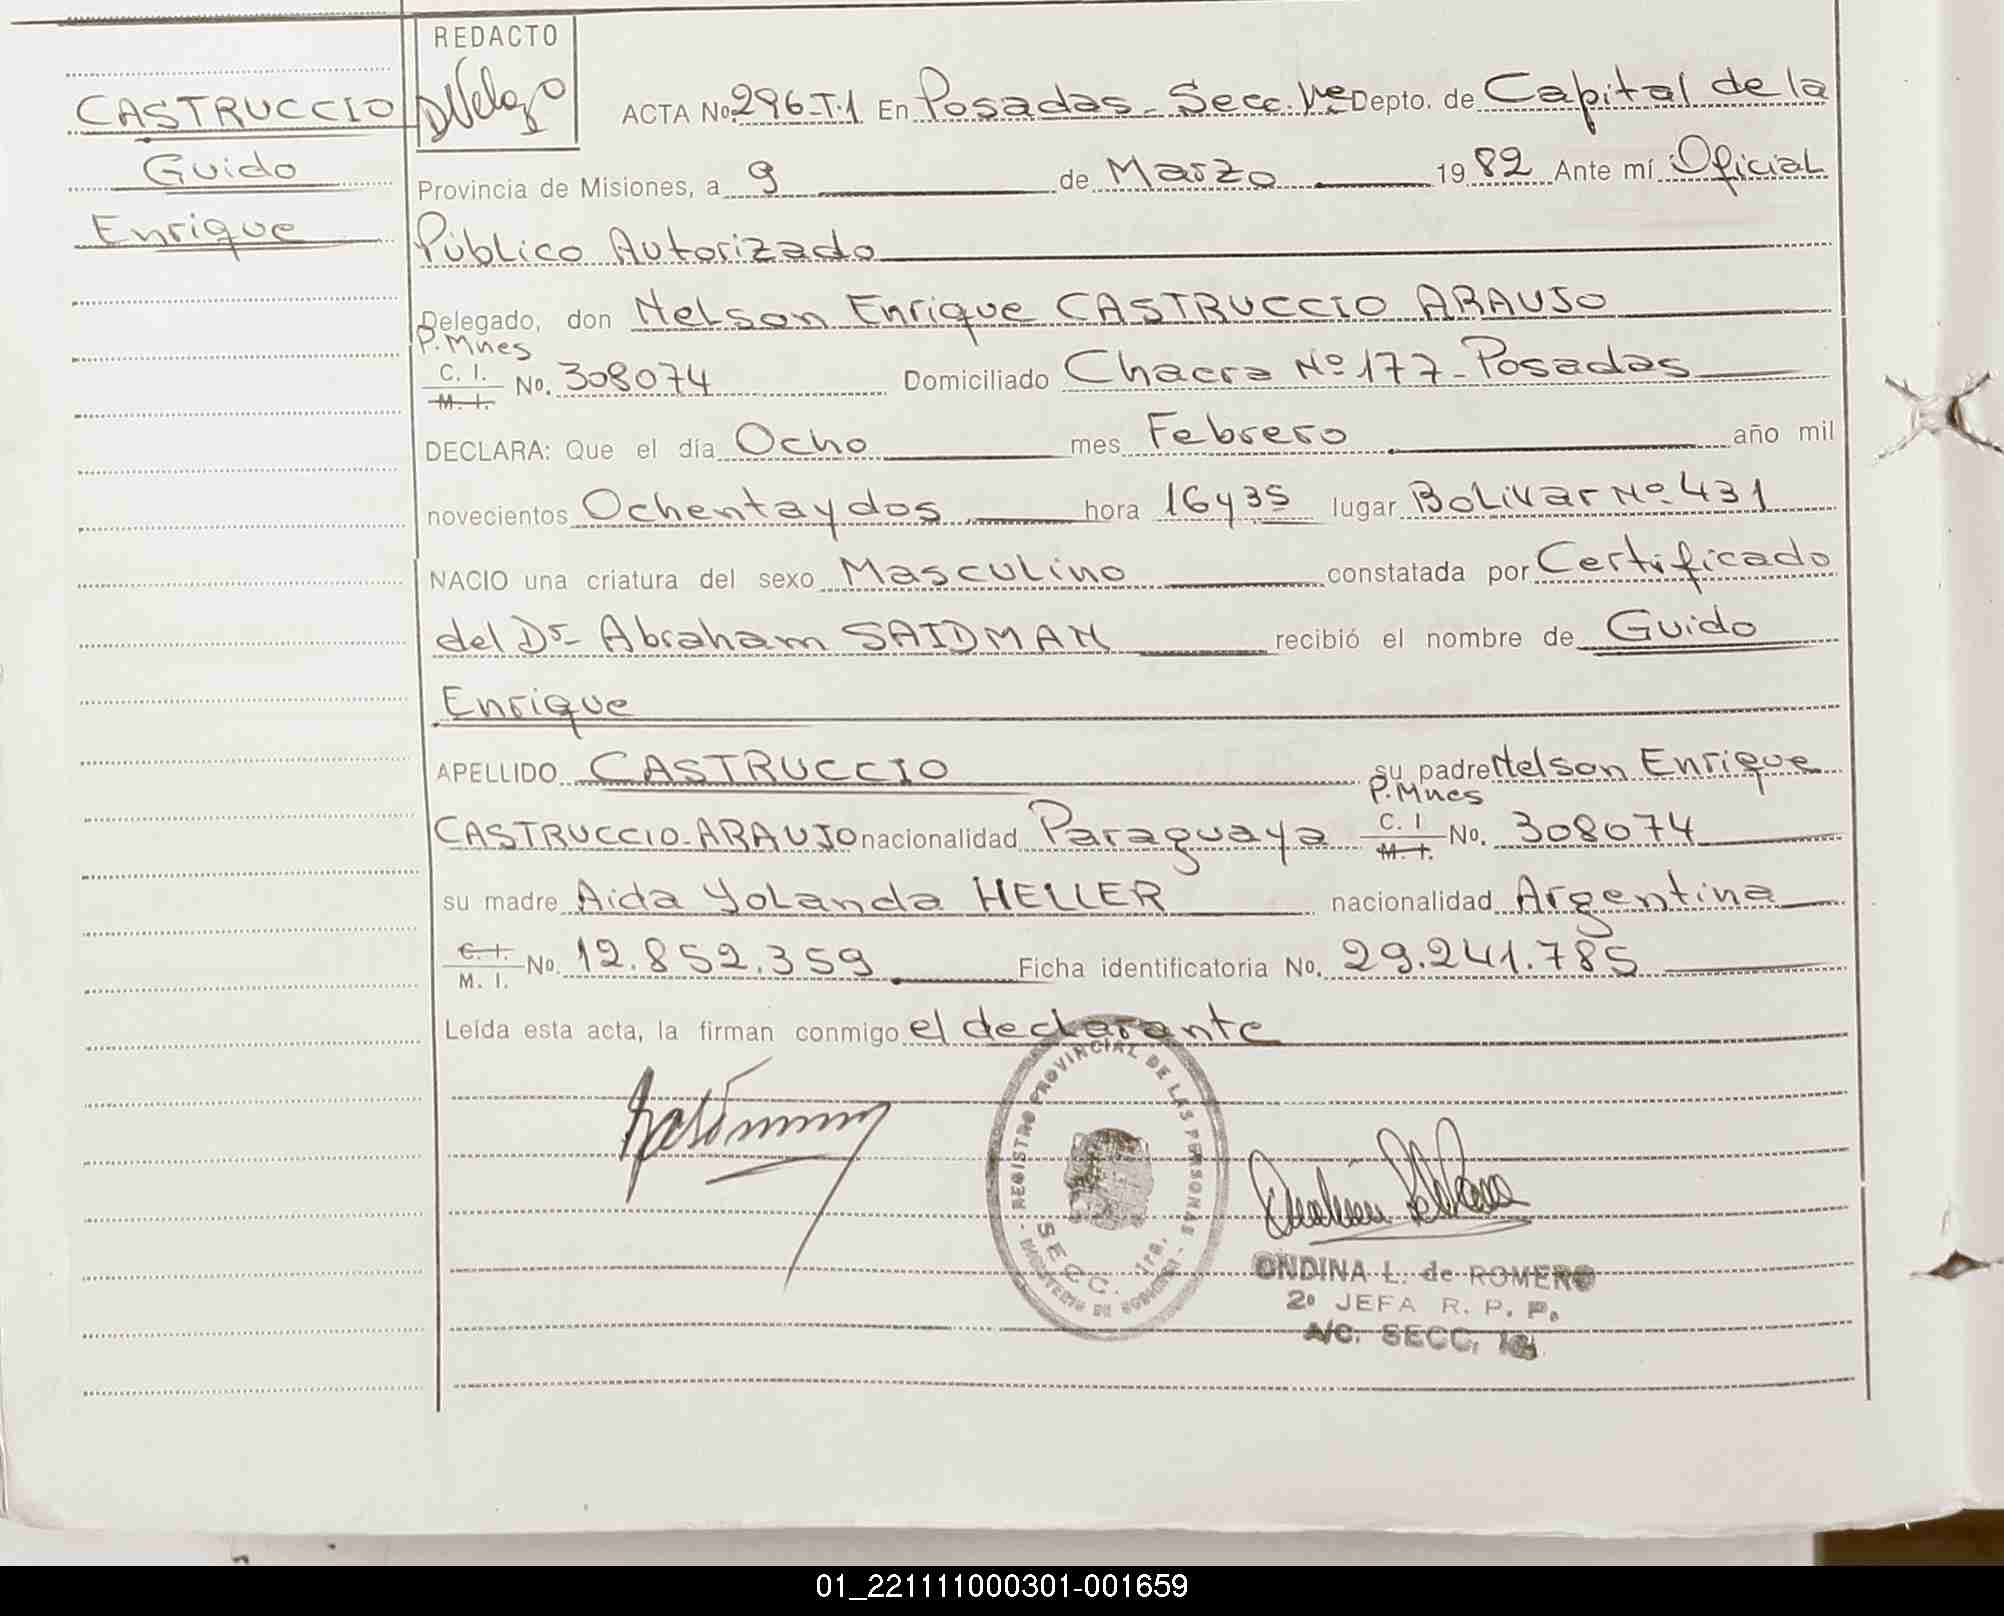 CASTRUCCIO
Guido
Enrique
REDACTO
ACTA No. 296-T.1 En Posadas - Secc. 1ra Depto. de Capital de la
Provincia de Misiones, a 9 de Marzo 1982 Ante mí Oficial
Público Autorizado
Delegado, don Nelson Enrique CASTRUCCIO ARAUJO
P. Mnes
C. I. / M. I. No. 308074 Domiciliado Chacra Nº 177 - Posadas
DECLARA: Que el día Ocho mes Febrero año mil
novecientos Ochentaydos hora 16y35 lugar Bolivar Nº 431
NACIO una criatura del sexo Masculino constatada por Certificado
del Dr. Abraham SAIDMAN recibió el nombre de Guido
Enrique
APELLIDO CASTRUCCIO su padre Nelson Enrique
P. Mnes
CASTRUCCIO-ARAUJO nacionalidad Paraguaya C. I / M. I. No. 308074
su madre Aida Yolanda HELLER nacionalidad Argentina
C. I. / M. I. No. 12.852.359 Ficha identificatoria No. 29.241.785
Leída esta acta, la firman conmigo el declarante
REGISTRO PROVINCIAL DE LAS PERSONAS
SECC. 1ra.
MINISTERIO DE GOBIERNO
ONDINA L. de ROMERO
2º JEFA R. P. P.
A/C. SECC. 1ª
01_221111000301-001659